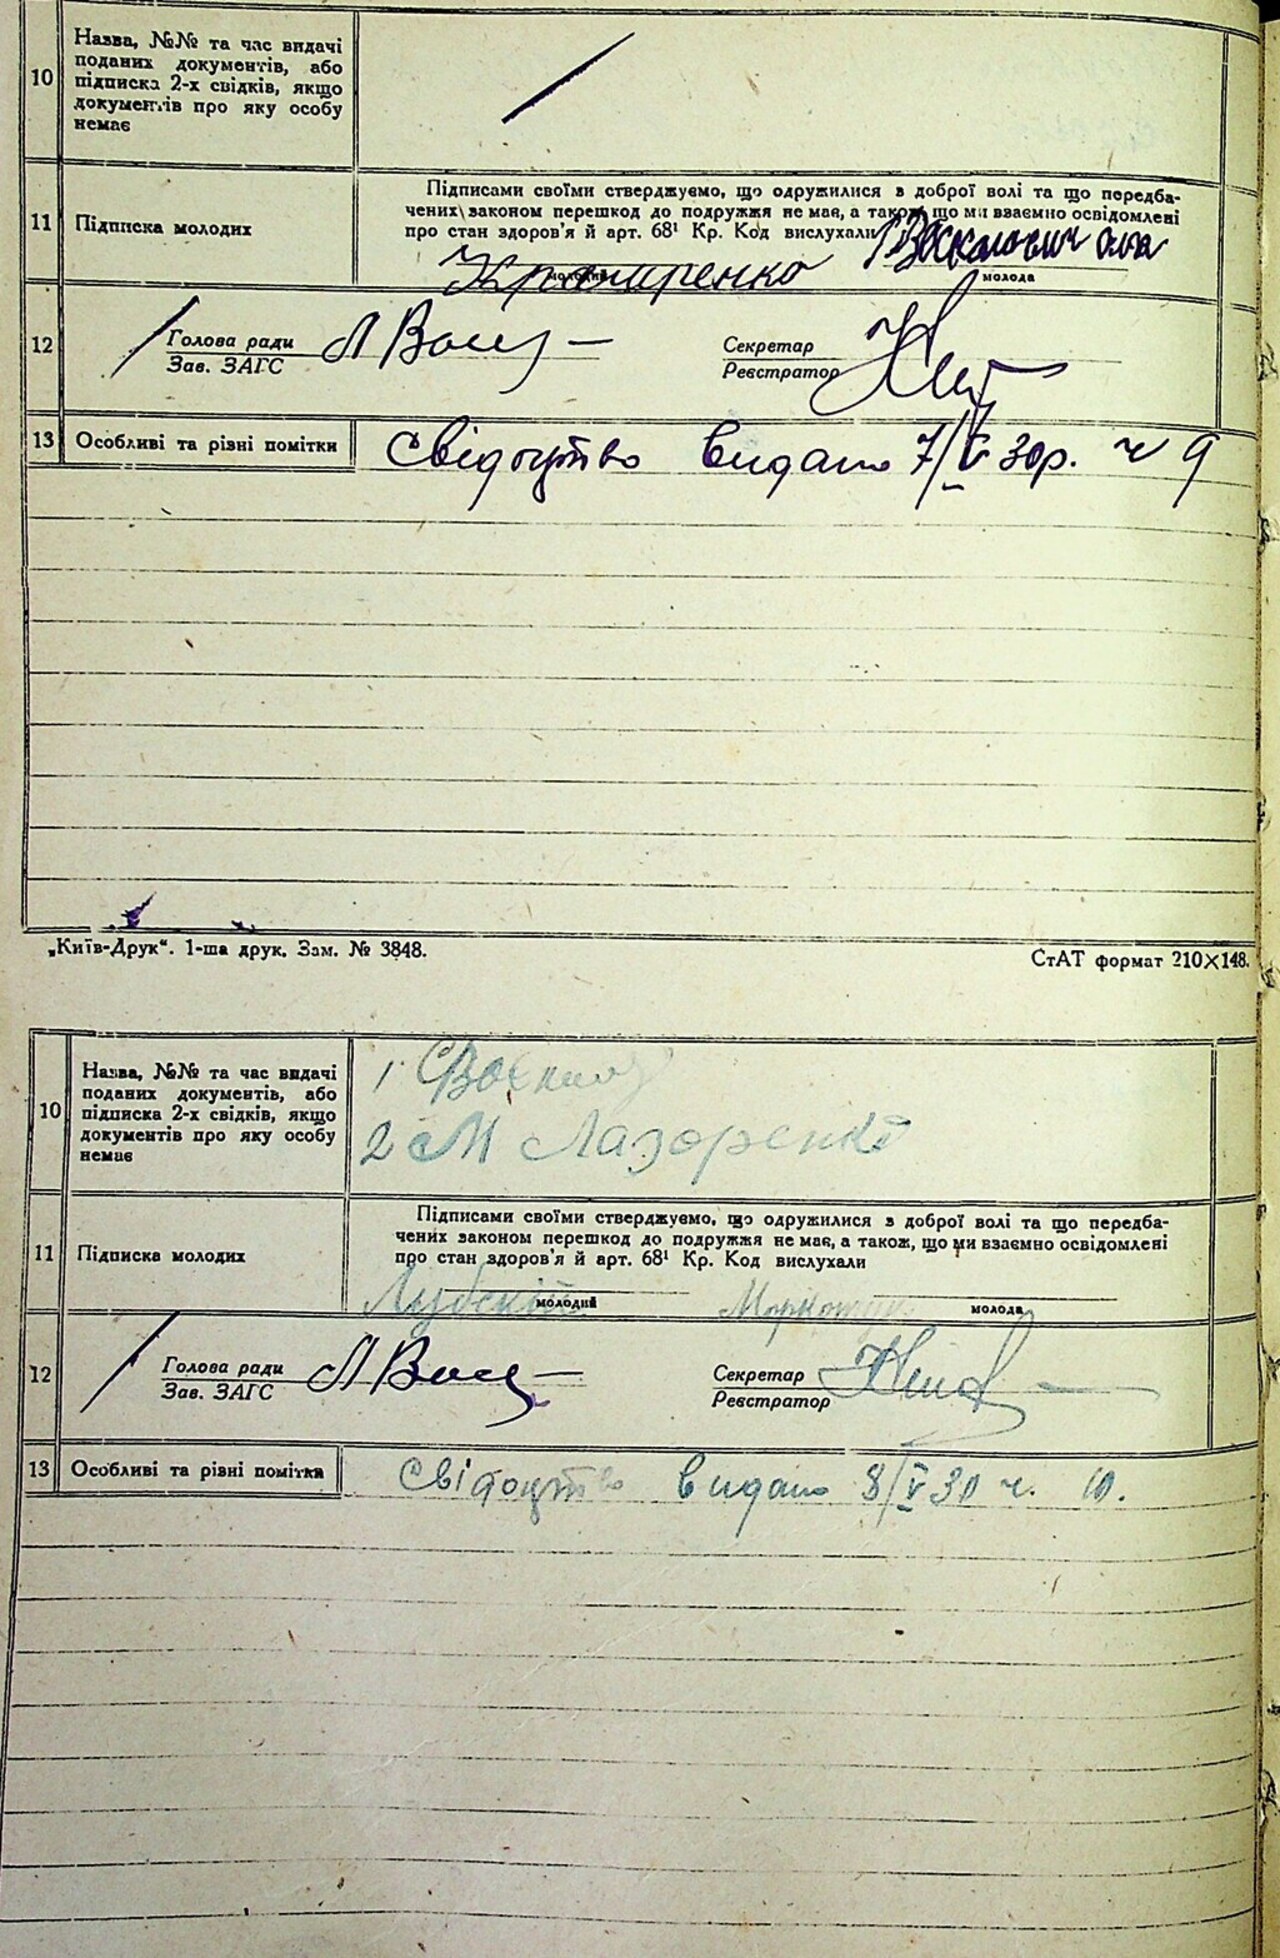 10
Назва, №№ та час видачі
поданих документів, або
підписка 2-х свідків, якщо
документів про яку особу
немає
11
Підписка молодих
Підписами своїми стверджуємо, що одружилися з доброї волі та що передба-
чених законом перешкод до подружжя не має, а також, що ми взаємно освідомлені
про стан здоров'я й арт. 68¹ Кр. Код вислухали
молодий
молода
12
Голова ради
Зав. ЗАГС
Секретар
Реєстратор
13
Особливі та різні помітки
Свідоцтво видано 7/V 30р. ч 9
„Київ-Друк“. 1-ша друк. Зам. № 3848.
СтАТ формат 210×148.
10
Назва, №№ та час видачі
поданих документів, або
підписка 2-х свідків, якщо
документів про яку особу
немає
1.
2 М Лазоренко
11
Підписка молодих
Підписами своїми стверджуємо, що одружилися з доброї волі та що передба-
чених законом перешкод до подружжя не має, а також, що ми взаємно освідомлені
про стан здоров'я й арт. 68¹ Кр. Код вислухали
молодий
молода
12
Голова ради
Зав. ЗАГС
Секретар
Реєстратор
13
Особливі та різні помітки
Свідоцтво видано 8/V 30 ч. 10.